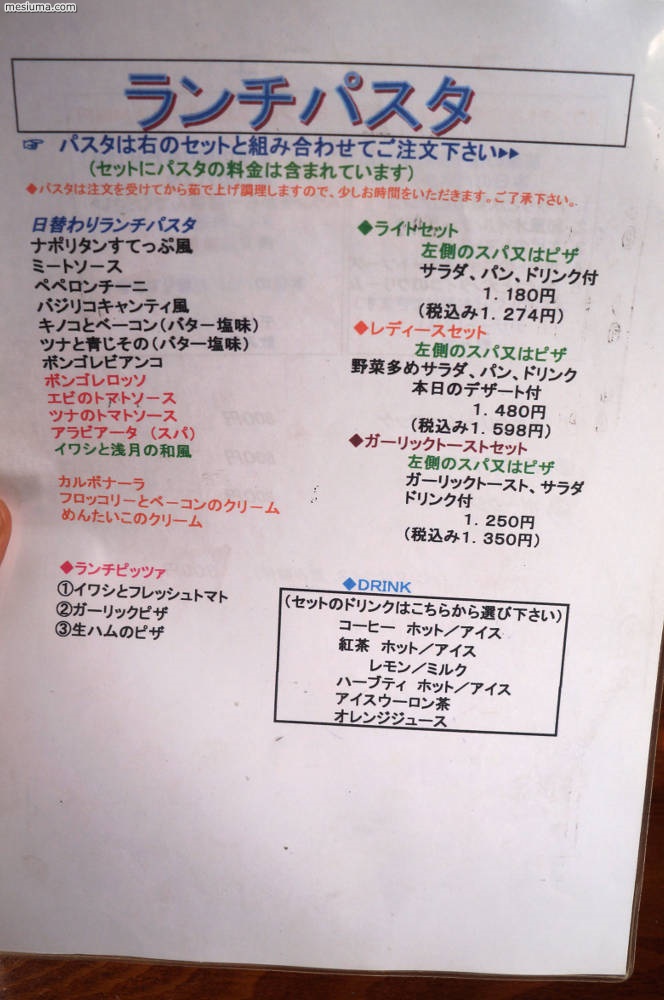 mesiuma.com
ランチパスタ
☞ パスタは右のセットと組み合わせてご注文下さい▶▶
(セットにパスタの料金は含まれています)
◆パスタは注文を受けてから茹で上げ調理しますので、少しお時間をいただきます。ご了承下さい。
日替わりランチパスタ
ナポリタンすてっぷ風
ミートソース
ペペロンチーニ
バジリコキャンティ風
キノコとベーコン(バター塩味)
ツナと青じその(バター塩味)
ボンゴレビアンコ
ボンゴレロッソ
エビのトマトソース
ツナのトマトソース
アラビアータ (スパ)
イワシと浅月の和風
カルボナーラ
フロッコリーとベーコンのクリーム
めんたいこのクリーム
◆ランチピッツァ
①イワシとフレッシュトマト
②ガーリックピザ
③生ハムのピザ
◆ライドセット
左側のスパ又はピザ
サラダ、パン、ドリンク付
1.180円
(税込み1.274円)
◆レディースセット
左側のスパ又はピザ
野菜多めサラダ、パン、ドリンク
本日のデザート付
1.480円
(税込み1.598円)
◆ガーリックトーストセット
左側のスパ又はピザ
ガーリックトースト、サラダ
ドリンク付
1.250円
(税込み1.350円)
◆DRINK
(セットのドリンクはこちらから選び下さい)
コーヒー ホット/アイス
紅茶 ホット/アイス
レモン/ミルク
ハーブティ ホット/アイス
アイスウーロン茶
オレンジジュース